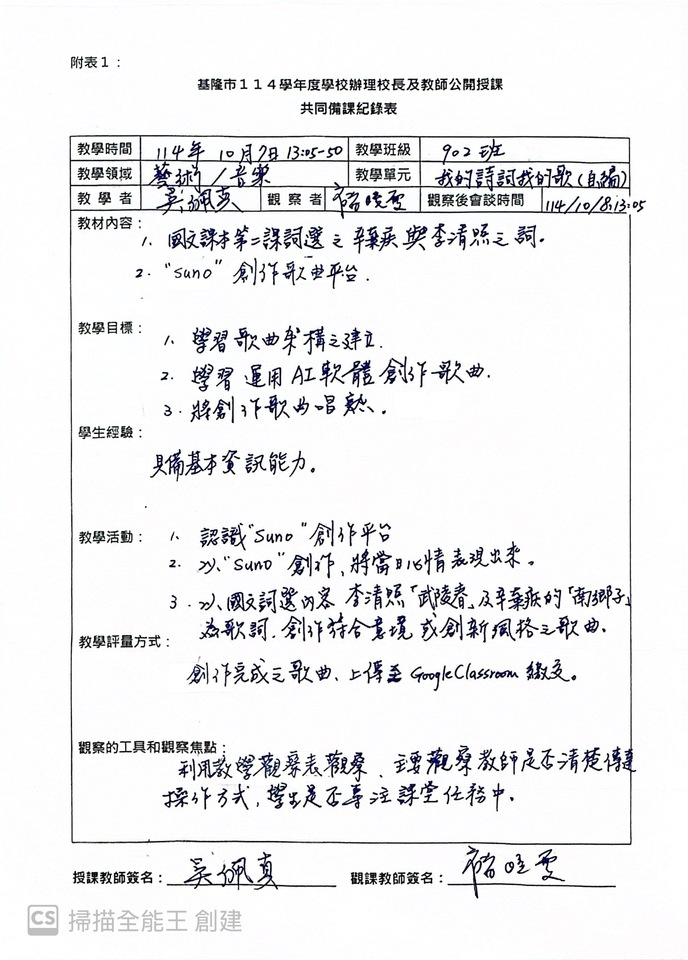 附表1：
基隆市114學年度學校辦理校長及教師公開授課
共同備課紀錄表
教學時間 114年 10月7日 13:05-50 教學班級 902班
教學領域 藝術/音樂 教學單元 我的詩詞我的歌(自編)
教學者 吳佩真 觀察者 曉雯 觀察後會談時間 114/10/8:13:05
教材內容：
1. 國文課本第二課詞選之辛棄疾與李清照之詞。
2. "suno" 創作歌曲平台.
教學目標：
1. 學習歌曲架構之建立.
2. 學習運用AI軟體創作歌曲.
3. 將創作歌曲唱熟。
學生經驗：
具備基本資訊能力。
教學活動：
1. 認識"Suno"創作平台
2. 以"Suno"創作、將當日心情表現出來。
3. 以國文詞選內容 李清照「武陵春」及辛棄疾的「南鄉子」
為歌詞，創作符合意境或創新風格之歌曲。
教學評量方式：
創作完成之歌曲、上傳至GoogleClassroom繳交。
觀察的工具和觀察焦點：
利用教學觀察表觀察、主要觀察教師是否清楚傳達
操作方式，學生是否專注課堂任務中。
授課教師簽名： 吳佩真 觀課教師簽名：
CS 掃描全能王 創建